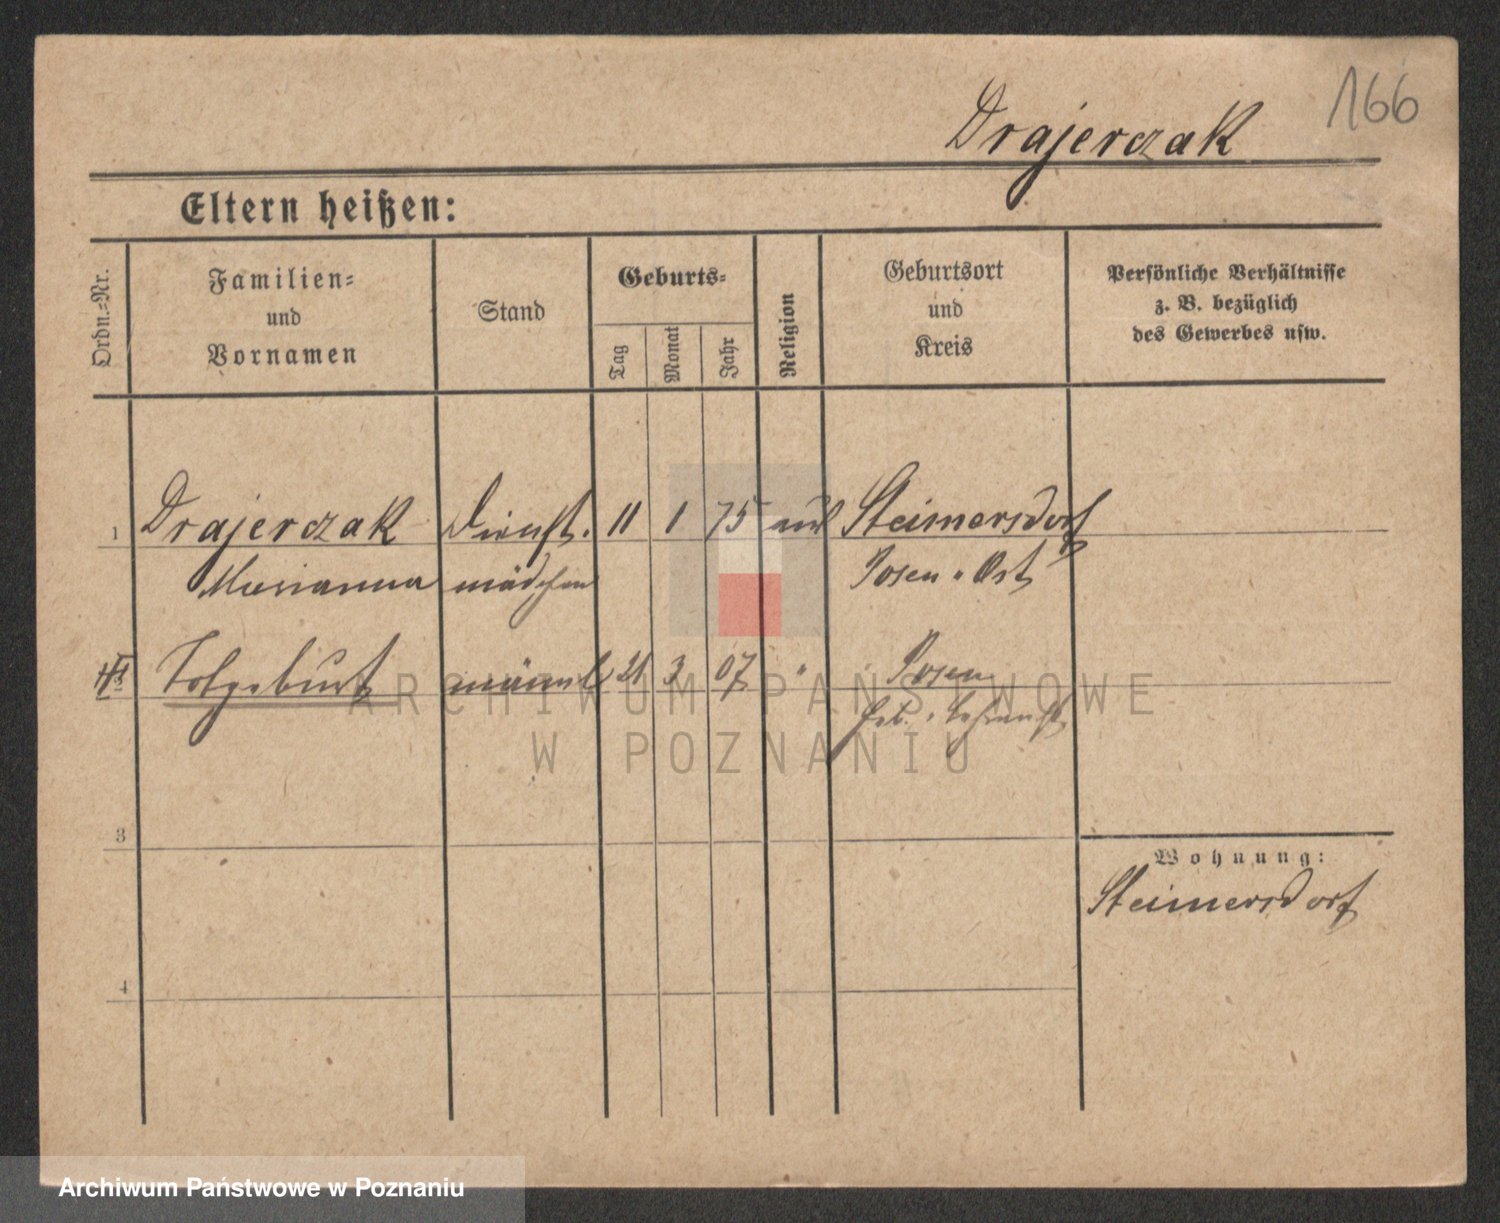 166
Drajerczak
Eltern heißen:
Ordn.-Nr.
Familien-
und
Vornamen
Stand
Geburts-
Tag
Monat
Jahr
Religion
Geburtsort
und
Kreis
Persönliche Verhältnisse
z. B. bezüglich
des Gewerbes usw.
1 Drajerczak Dienst- 11 1 75 Steimersdorf
Marianna mädchen Posen-Ost
Totgeburt männl. 21 3 07 " Posen
3
4
Wohnung:
Steimersdorf
ARCHIWUM PAŃSTWOWE
W POZNANIU
Archiwum Państwowe w Poznaniu